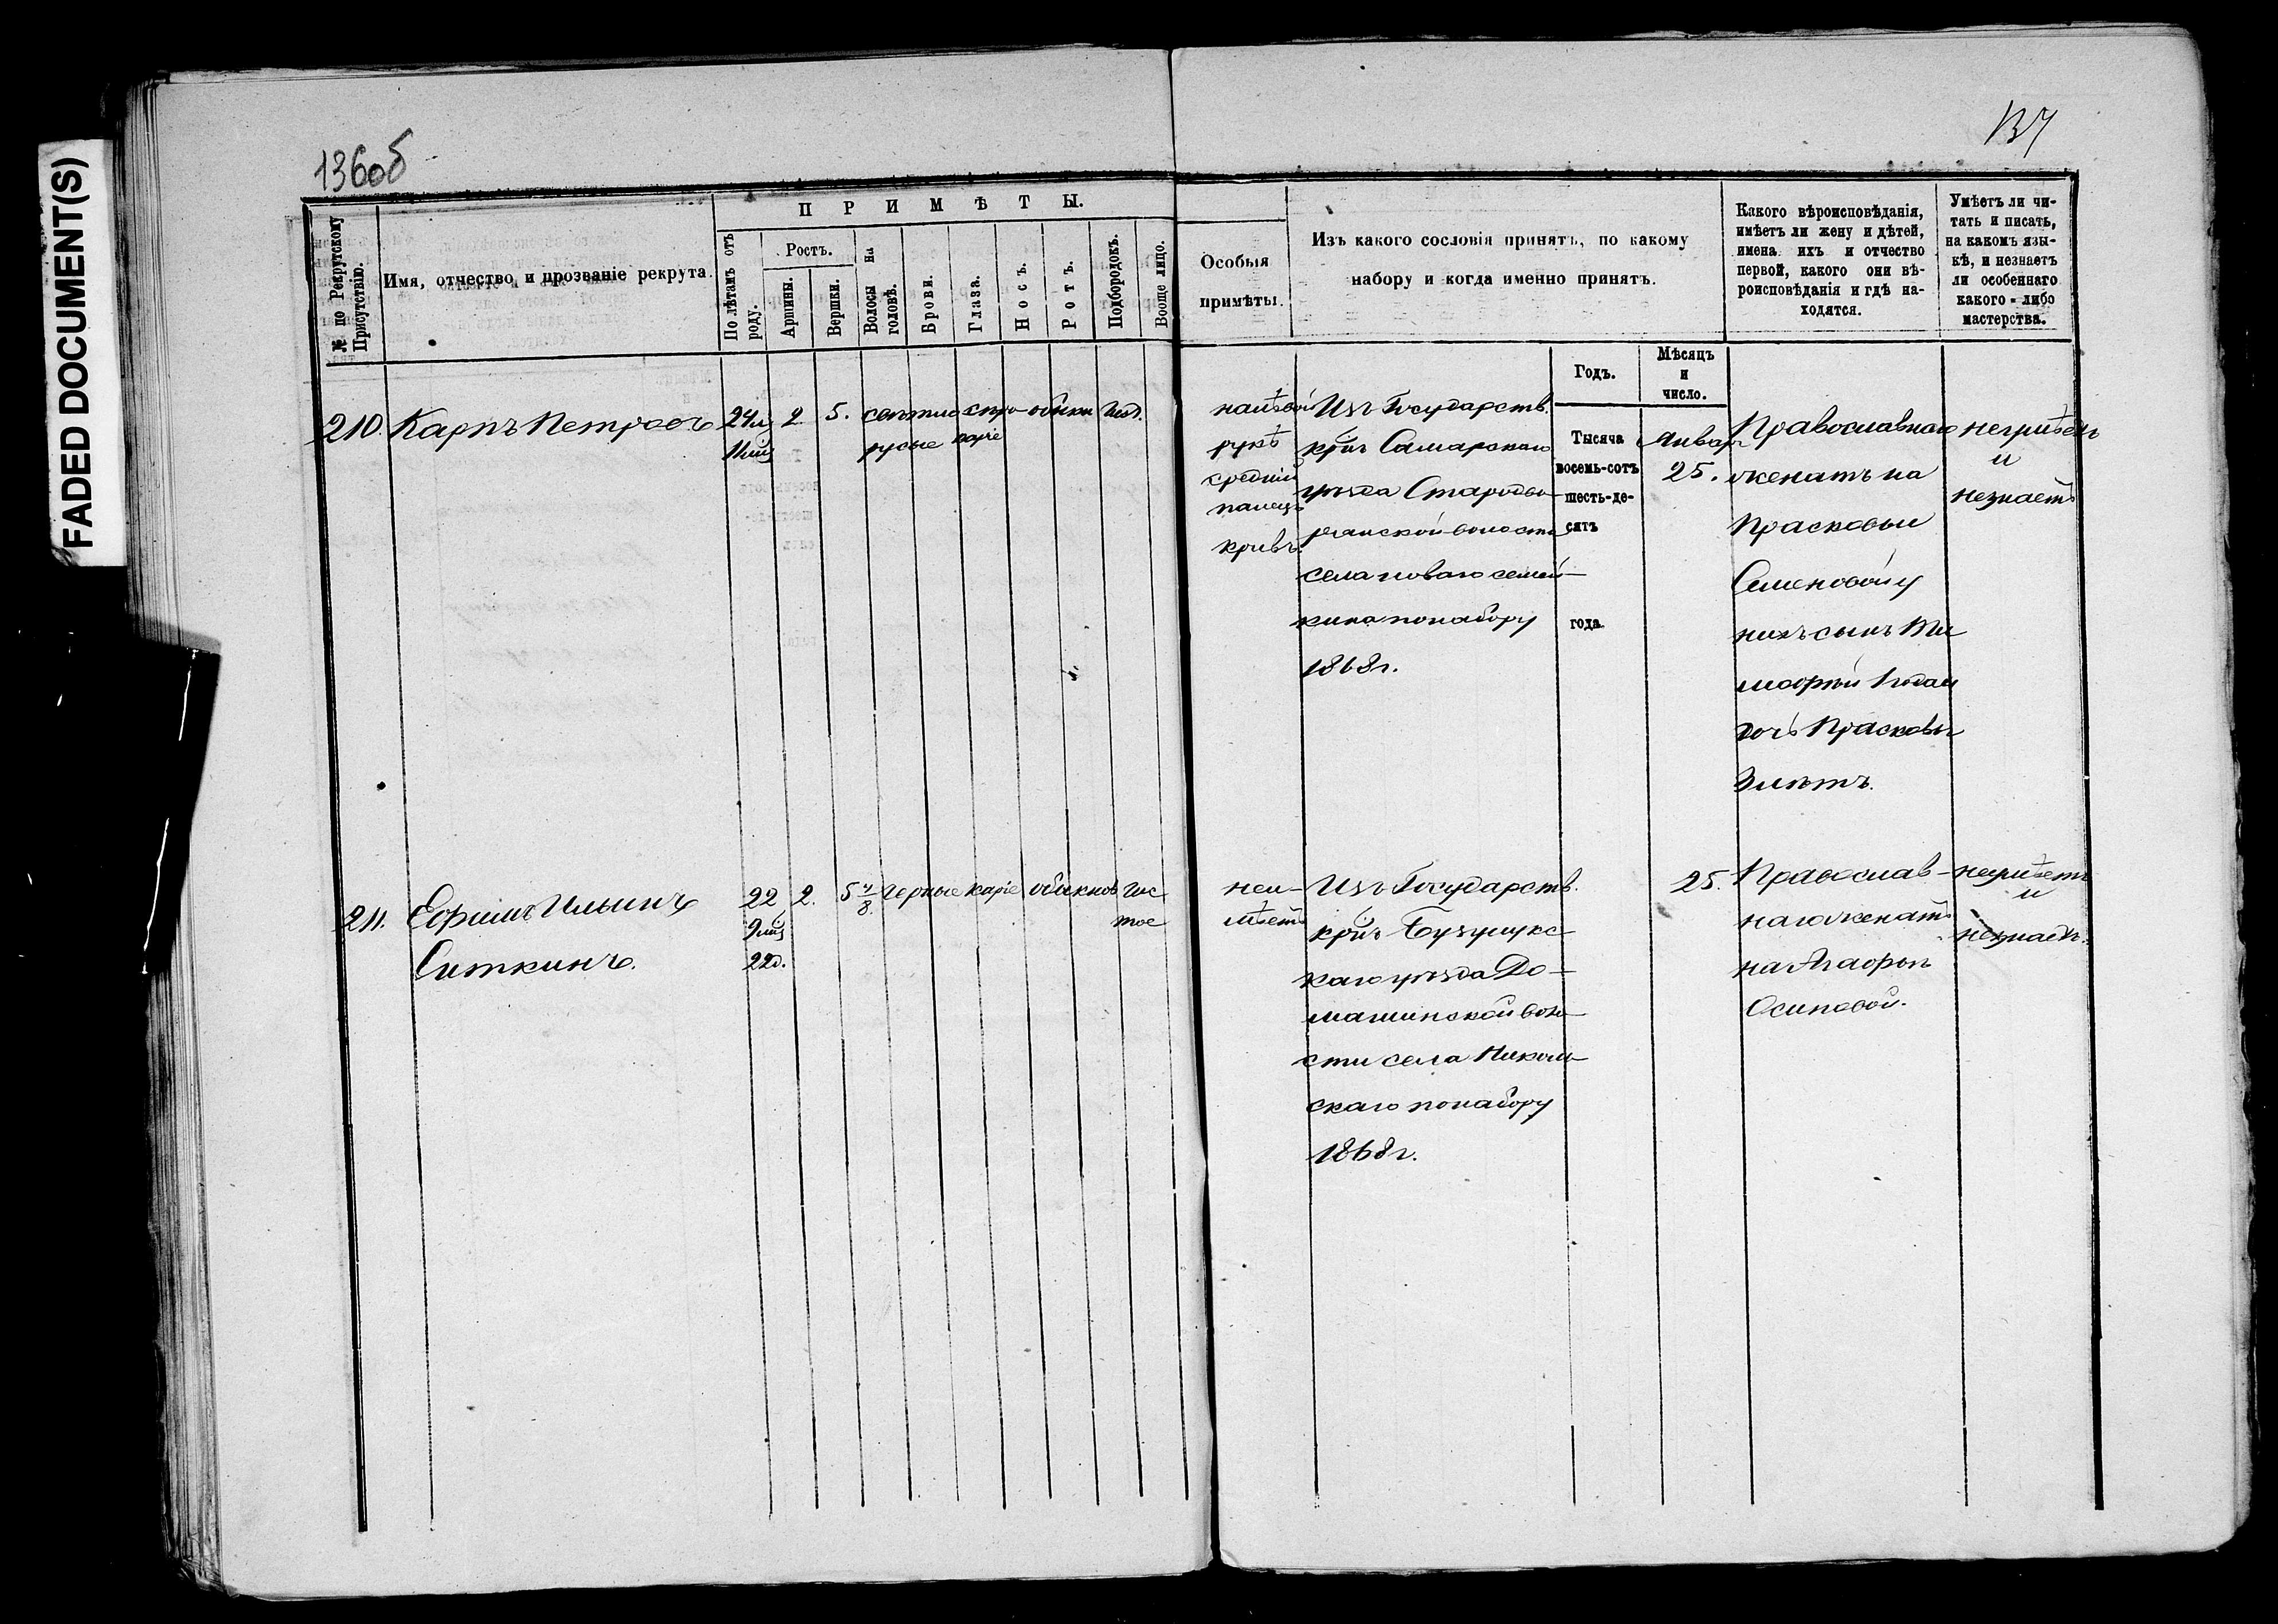 FADED DOCUMENT(S)
136об
137
№ по Рекрутскому Присутствію.
Имя, отчество и прозваніе рекрута.
ПРИМѢТЫ.
По лѣтамъ отъ роду.
Ростъ.
Аршины.
Вершки.
Волосы на головѣ.
Брови.
Глаза.
Носъ.
Ротъ.
Подбородокъ.
Вооще лицо.
Особыя
примѣты.
Изъ какого сословія принятъ, по какому
набору и когда именно принятъ.
Годъ.
Мѣсяцъ
и
число.
Какого вѣроисповѣданія,
имѣетъ ли жену и дѣтей,
имена ихъ и отчество
первой, какого они вѣ-
роисповѣданія и гдѣ на-
ходятся.
Умѣетъ ли чи-
тать и писать,
на какомъ язы-
кѣ, и незнаетъ
ли особеннаго
какого-либо
мастерства.
210. Карпъ Петровъ 2 5.
русые каріе
рукѣ
средній
палецъ
кривъ.
Изъ Государств.
крнъ Самарскаго
уѣзда Стародво-
рянской волости
села новаго семей-
кина понабору
1868г.
Тысяча
восемь-сотъ
шесть-де-
сятъ
года.
Январ
25.
Православнаго
женатъ на
Прасковьи
Семеновой у
нихъ сынъ Ти
мофѣй 1 года и
дочь Прасковья
3 лѣтъ.
неумѣетъ
и
незнаетъ
211. Ефимъ Ильинъ 22 2. 5 4/8. черные каріе обыкнов чис
тое
Ситкинъ.
9 мц
22д.
неи-
мѣетъ
Изъ Государств.
крнъ Бузулукс-
каго уѣзда До-
машинской воло-
сти села Николь-
скаго понабору
1868г.
25.
Православ-
наго женатъ
на Агафьѣ
Осиповой.
неумѣетъ
и
незнаетъ.